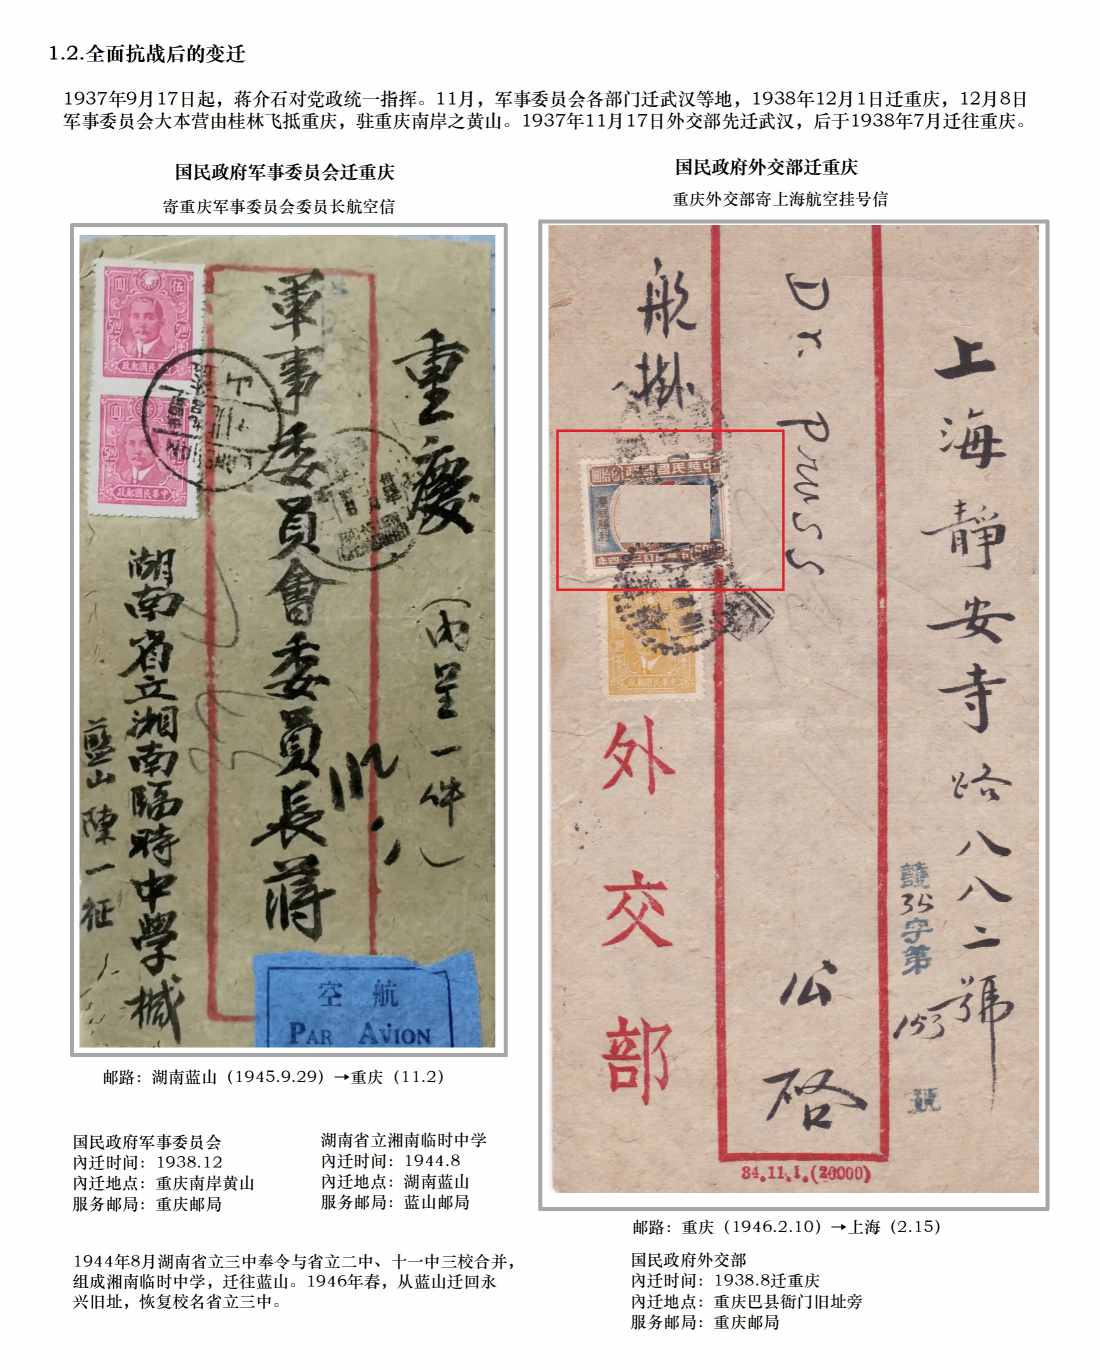 1.2.全面抗战后的变迁
1937年9月17日起，蒋介石对党政统一指挥。11月，军事委员会各部门迁武汉等地，1938年12月1日迁重庆，12月8日
军事委员会大本营由桂林飞抵重庆，驻重庆南岸之黄山。1937年11月17日外交部先迁武汉，后于1938年7月迁往重庆。
国民政府军事委员会迁重庆
寄重庆军事委员会委员长航空信
重慶
(内呈一件
軍事委員會委員長蔣
湖南省立湘南臨時中學緘
藍山陳一征
伍圓
中華民國郵政
中華民國郵政
空航
PAR AVION
邮路：湖南蓝山（1945.9.29）→重庆（11.2）
国民政府军事委员会
内迁时间：1938.12
内迁地点：重庆南岸黄山
服务邮局：重庆邮局
湖南省立湘南临时中学
内迁时间：1944.8
内迁地点：湖南蓝山
服务邮局：蓝山邮局
1944年8月湖南省立三中奉令与省立二中、十一中三校合并，
组成湘南临时中学，迁往蓝山。1946年春，从蓝山迁回永
兴旧址，恢复校名省立三中。
国民政府外交部迁重庆
重庆外交部寄上海航空挂号信
上海靜安寺路八八二號
護35字第153號
Dr. Pruss
公啓
航掛
中華民國郵政
外交部
34.11.1.(20000)
邮路：重庆（1946.2.10）→上海（2.15）
国民政府外交部
内迁时间：1938.8迁重庆
内迁地点：重庆巴县衙门旧址旁
服务邮局：重庆邮局